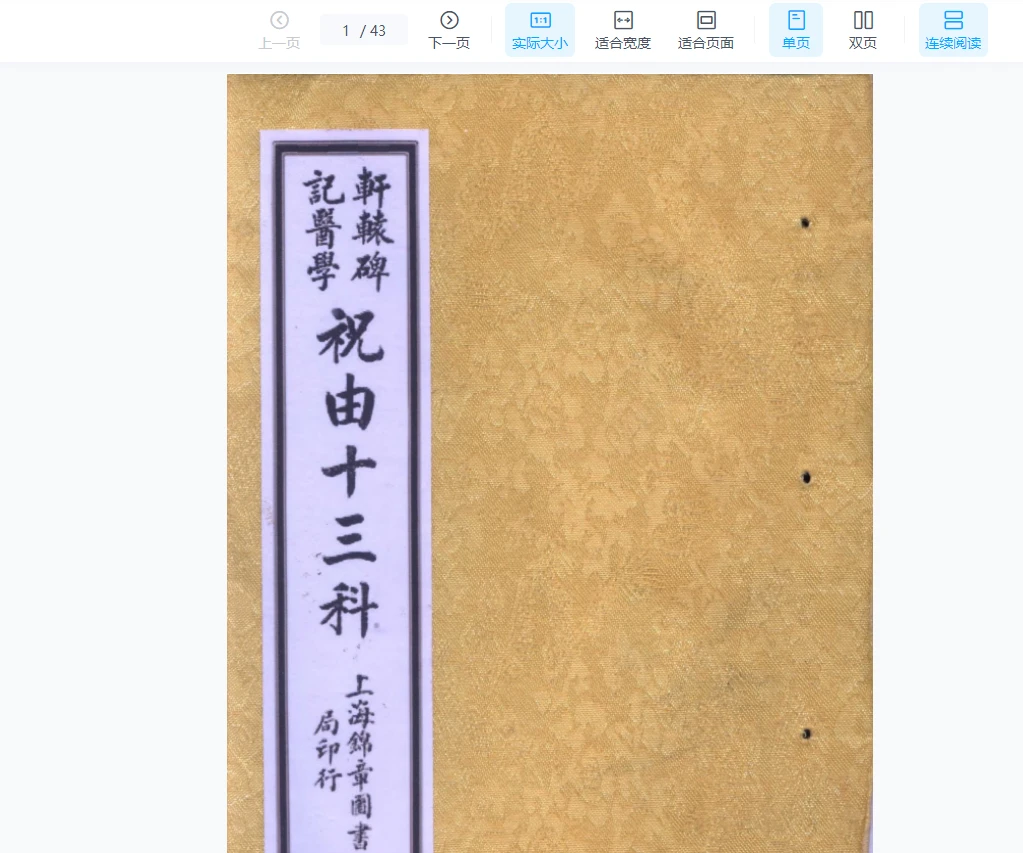 上一页
1 / 43
下一页
实际大小
适合宽度
适合页面
单页
双页
连续阅读
軒轅碑
記醫學
祝由十三科
上海錦章圖書
局印行